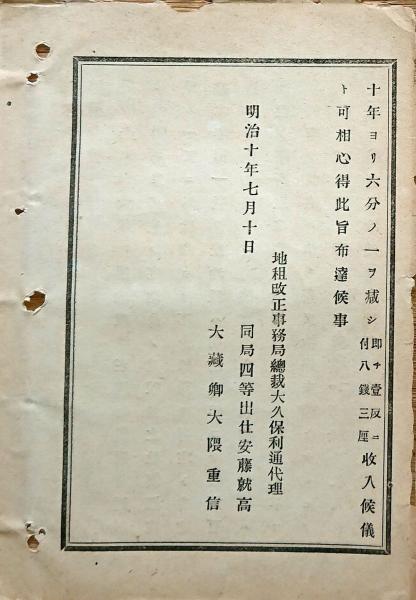 十年ヨリ六分ノ一ヲ減シ即チ壹反ニ付八錢三厘收入候儀
ト可相心得此旨布達候事
明治十年七月十日
地租改正事務局總裁大久保利通代理
同局四等出仕安藤就高
大藏卿大隈重信